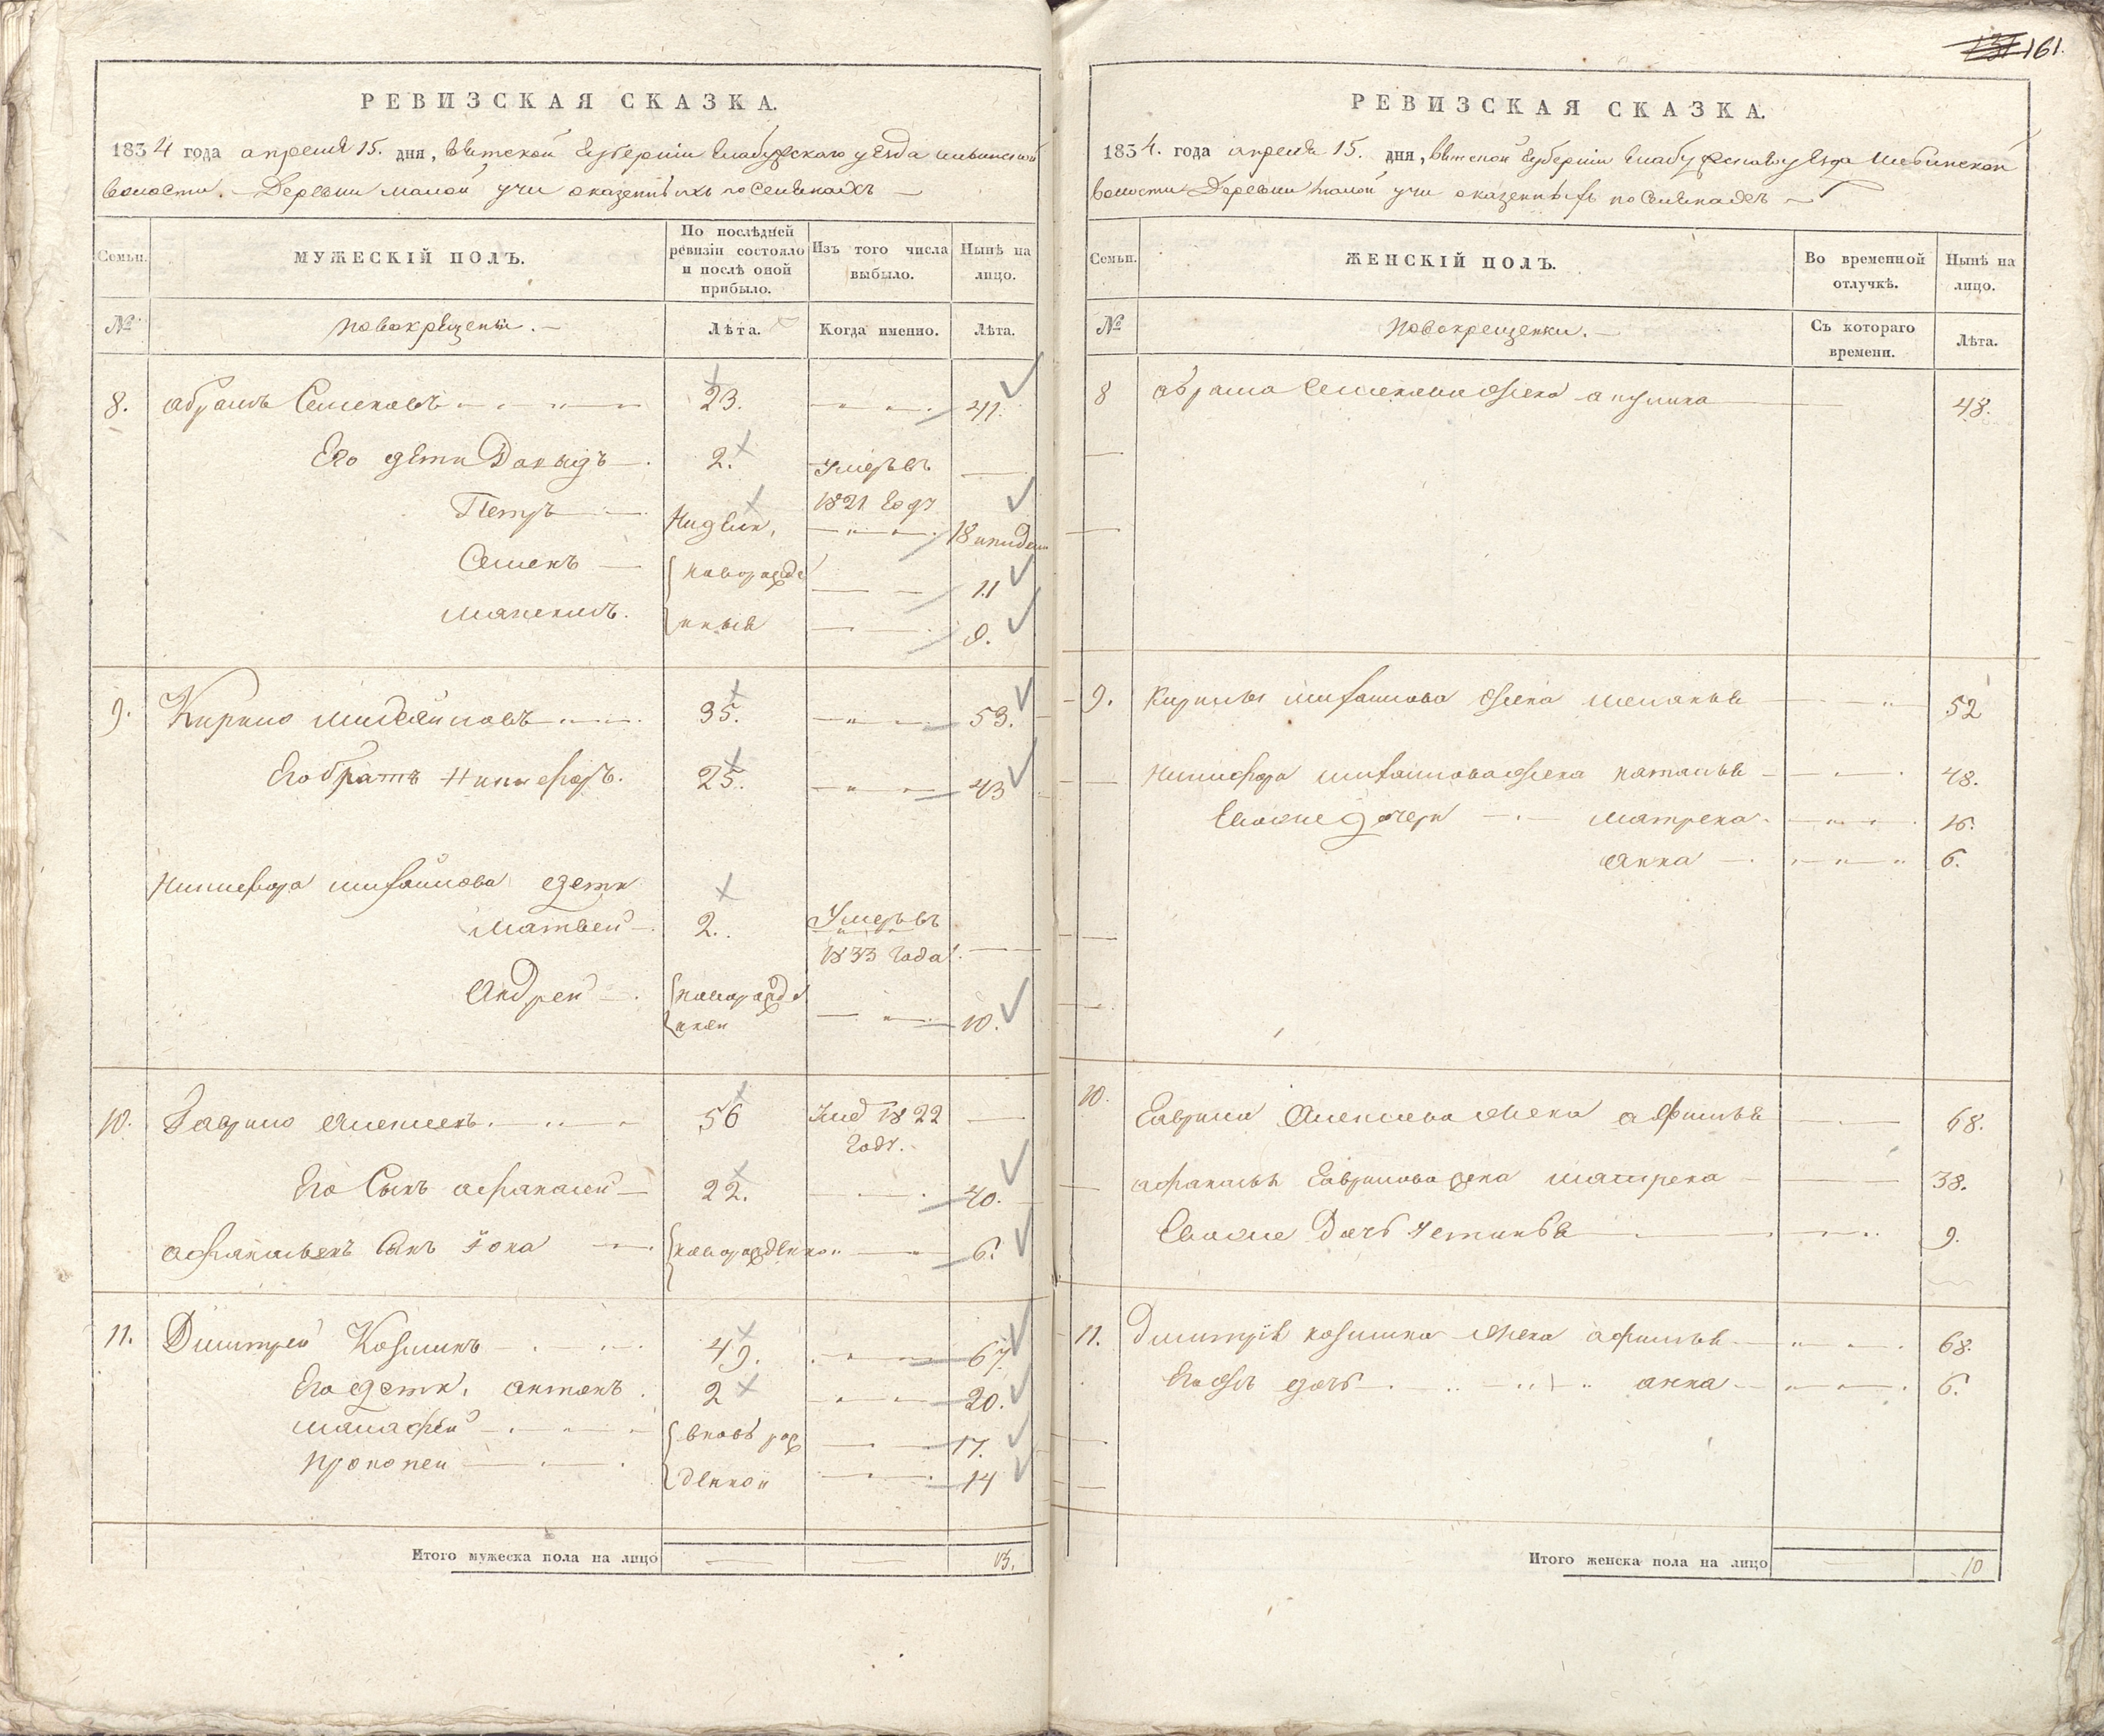 161.
РЕВИЗСКАЯ СКАЗКА.
1834 года апреля 15. дня, Вятской губернии Елабужскаго уезда
волости. Деревни Малой Учи о
Семьи. МУЖЕСКІЙ ПОЛЪ. По послѣдней ревизіи состояло и послѣ оной прибыло. Изъ того числа выбыло. Нынѣ на лицо.
№ новокрещены. Лѣта. Когда именно. Лѣта.
8. абрамъ Семеновъ 23. 41.
Его дети Давыдъ 2. Умеръ въ
1821 году
Петръ недель 18
Семенъ новорожде 11
нныя 9.
9. Кирило Михайловъ 35. 53.
Его братъ Никифоръ. 25. 43
Никифора михайлова дети
Матвей 2. Умеръ въ
1833 года
Андрей новорожде
нной 10.
10. Гаврило Алексеевъ. 56 Умер 1822
году.
Его Сынъ афанасей 22. 40.
афанасьевъ Сынъ Фока новорожденной 6.
11. Дмитрей Козминъ 49. 67.
Его дети, антонъ. 2 20.
вновь рож 17.
Прокопей денной 14
Итого мужеска пола на лицо 13.
РЕВИЗСКАЯ СКАЗКА.
1834. года апреля 15. дня, Вятской губернии Елабужскаго уезда
волости Деревни малой учи о
Семьи. ЖЕНСКІЙ ПОЛЪ. Во временной отлучкѣ. Нынѣ на лицо.
№ Новокрещенки. Съ котораго времени. Лѣта.
8 абрама Семенова жена акулина 48.
9. Кирилы михайлова жена маланья 52
Никифора михайлова жена наталья 48.
дочери матрена 16.
анна 6.
10. Гаврила Алексеева жена афимья 68.
афанасья Гаврилова жена матрена 38.
Дочь Устинья 9.
11. Дмитрія козмина жена афимья 68.
дочь анна 6.
Итого женска пола на лицо 10